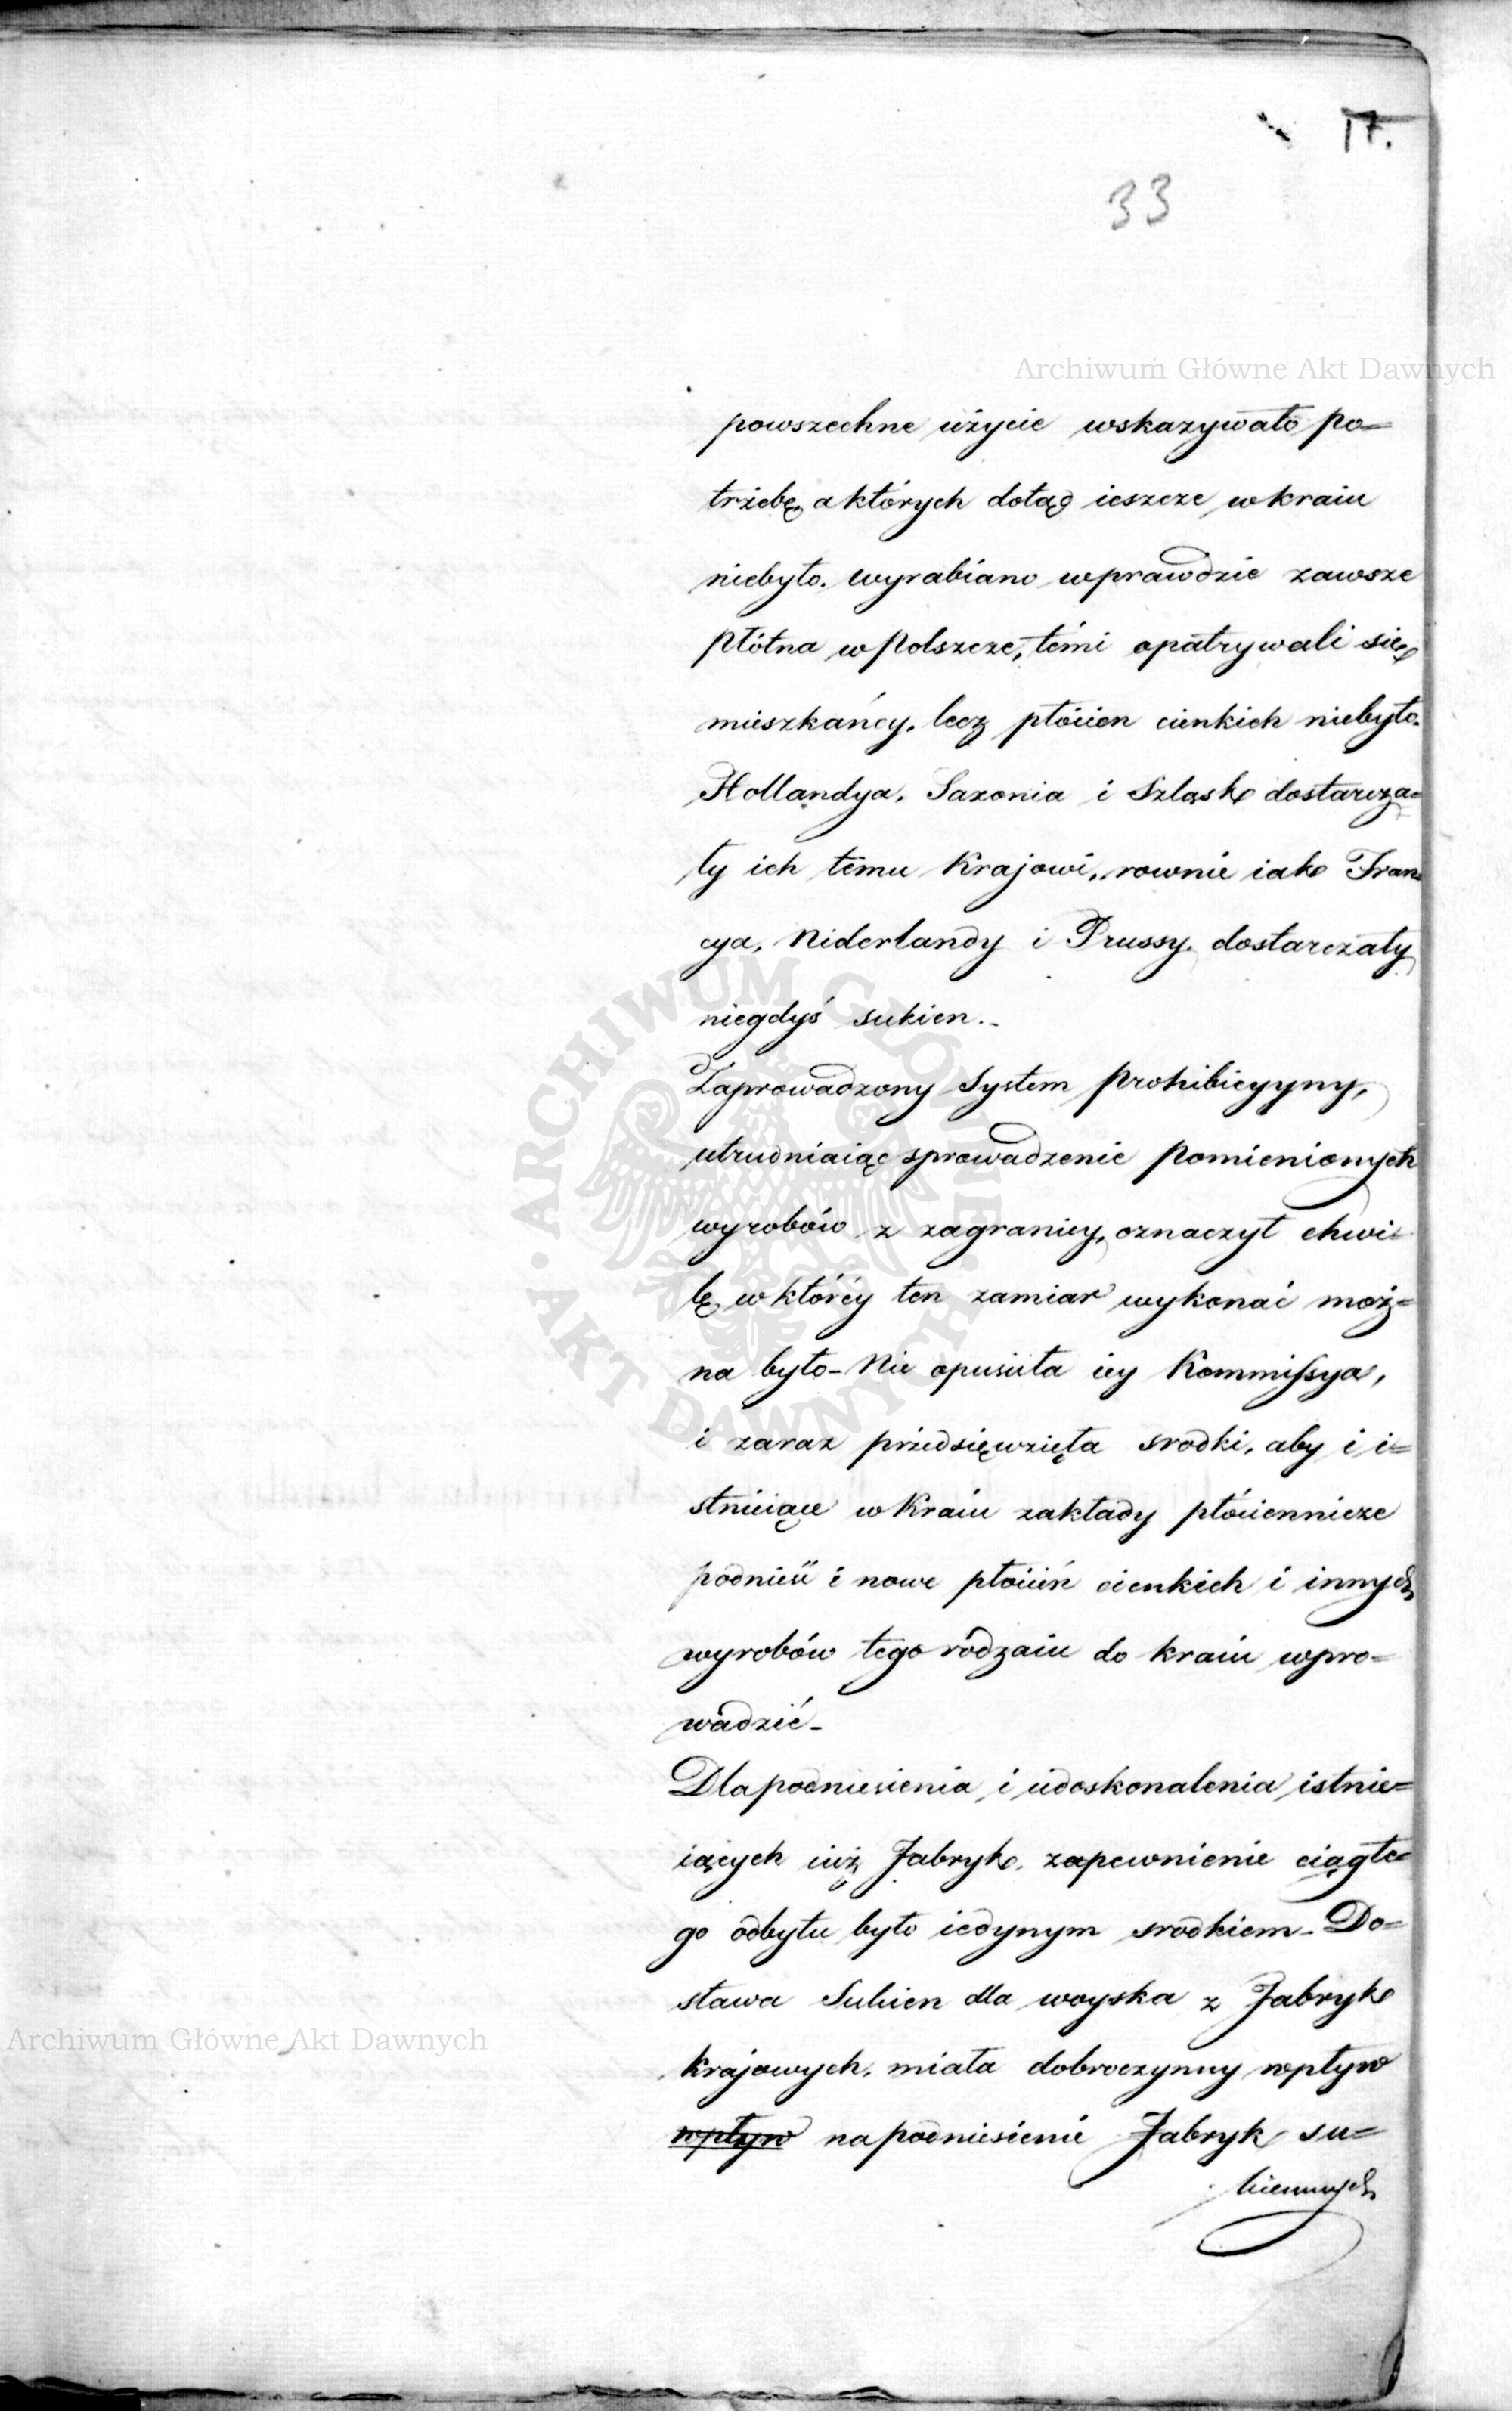 17.
33
Archiwum Główne Akt Dawnych
powszechne użycie wskazywało po=
trzebę, a których dotąd ieszcze w kraiu
niebyło. Wyrabiano wprawdzie zawsze
płótna w Polszcze, témi opatrywali się
mieszkańcy, lecz płócien cienkich niebyło.
Hollandya, Saxonia i Szląsk dostarcza=
ły ich temu Krajowi, rownie iak Fran=
cya, Niderlandy i Prussy, dostarczały
niegdyś sukien.-
Zaprowadzony System prohibicyyny,
utrudniaiąc sprowadzenie pomienionych
wyrobów z zagranicy, oznaczył chwi=
lę, w któréy ten zamiar wykonać moż=
na było- Nie opuściła iey Kommissya,
i zaraz przedsięwzięła srodki, aby i i=
stnieiące w Kraiu zakłady płóciennicze
podnieść i nowe płócién cienkich i innych
wyrobów tego rodzaiu do kraiu wpro=
wadzić-
Dla podniesienia i udoskonalenia istnie=
iących iuż Fabryk, zapewnienie ciągłe=
go odbytu było iedynym srodkiem- Do=
stawa Sukien dla woyska z Fabryk
krajowych, miała dobroczynny wpływ
wpływ na podniesienie Fabryk su=
kiennych
Archiwum Główne Akt Dawnych
ARCHIWUM GŁÓWNE · AKT DAWNYCH ·